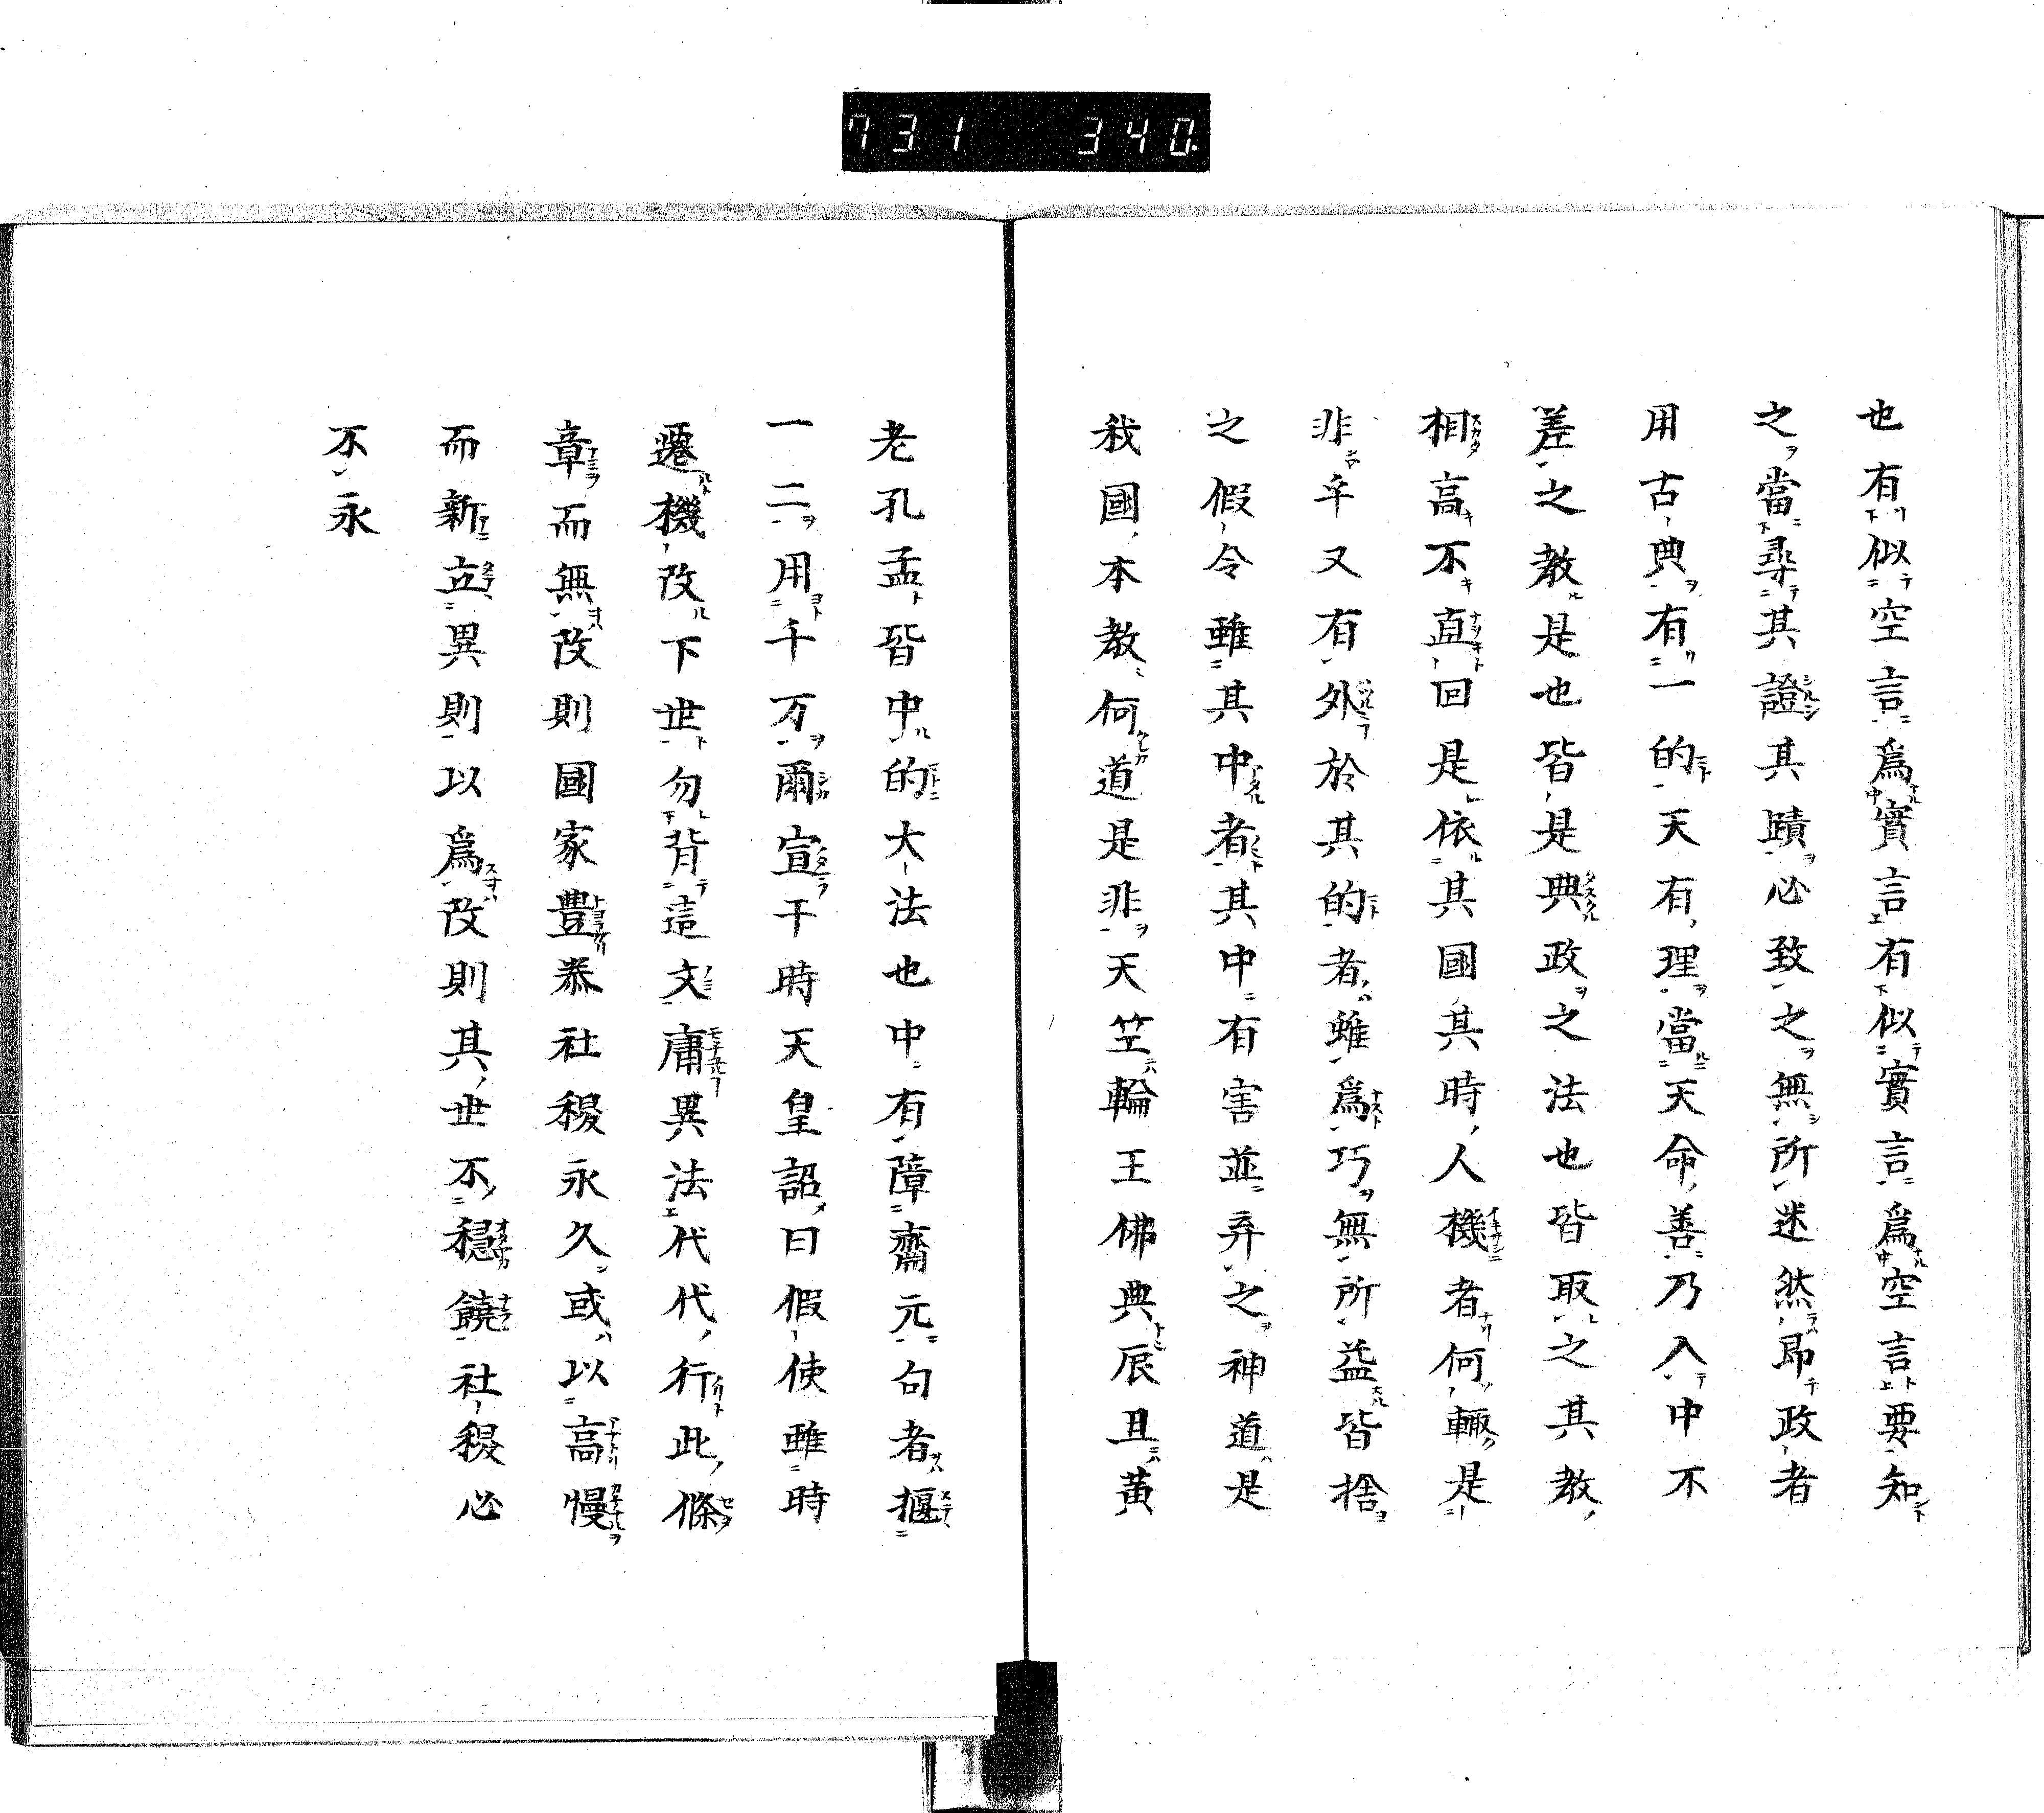 731 340.
也有似空言爲實言有似實言爲空言要知
之當尋其證其蹟必致之無所迷然即政者
用古典有一的天有理當天命善乃入中不
差之教是也皆是典政之法也皆取之其教
相高不直回是依其國其時人機者何輙是
非乎又有外於其的者雖爲巧無所益皆捨
之假令雖其中者其中有害並弃之神道是
我國本教何道是非天竺輪王佛典辰旦黃
老孔孟皆中的大法也中有障齋元句者揠
一二用千万爾宣干時天皇詔曰假使雖時
遷機改下世勿背這文庸異法代代行此條
章而無改則國家豊恭社稷永久或以高慢
而新立異則以爲改則其世不穏饒社稷必
不永